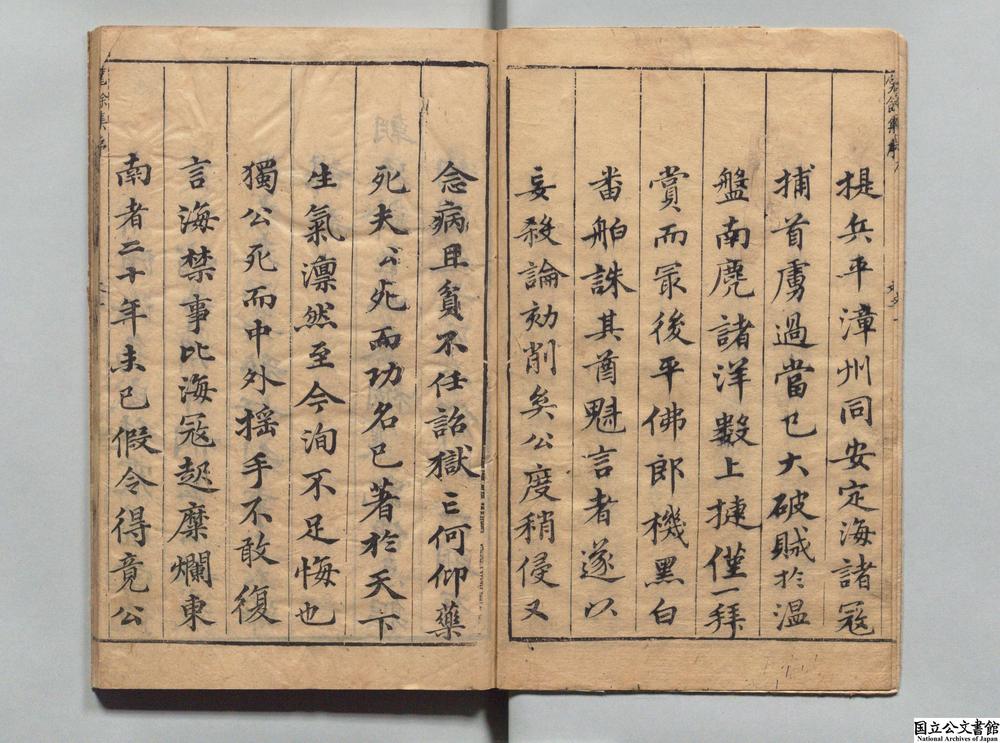 提兵平漳州同安定海諸冦
捕首虜過當已大破賊於温
盤南麂諸洋數上捷僅一拜
賞而冣後平佛郎機黑白
畨舶誅其酋魁言者遂以
妄殺論劾削矣公度稍侵又
念病且貧不任詔獄亡何仰藥
死夫公死而功名已著於天下
生氣凛然至今洵不足悔也
獨公死而中外揺手不敢復
言海禁事比海冦起糜爛東
南者二十年未已假令得竟公
国立公文書館
National Archives of Japan